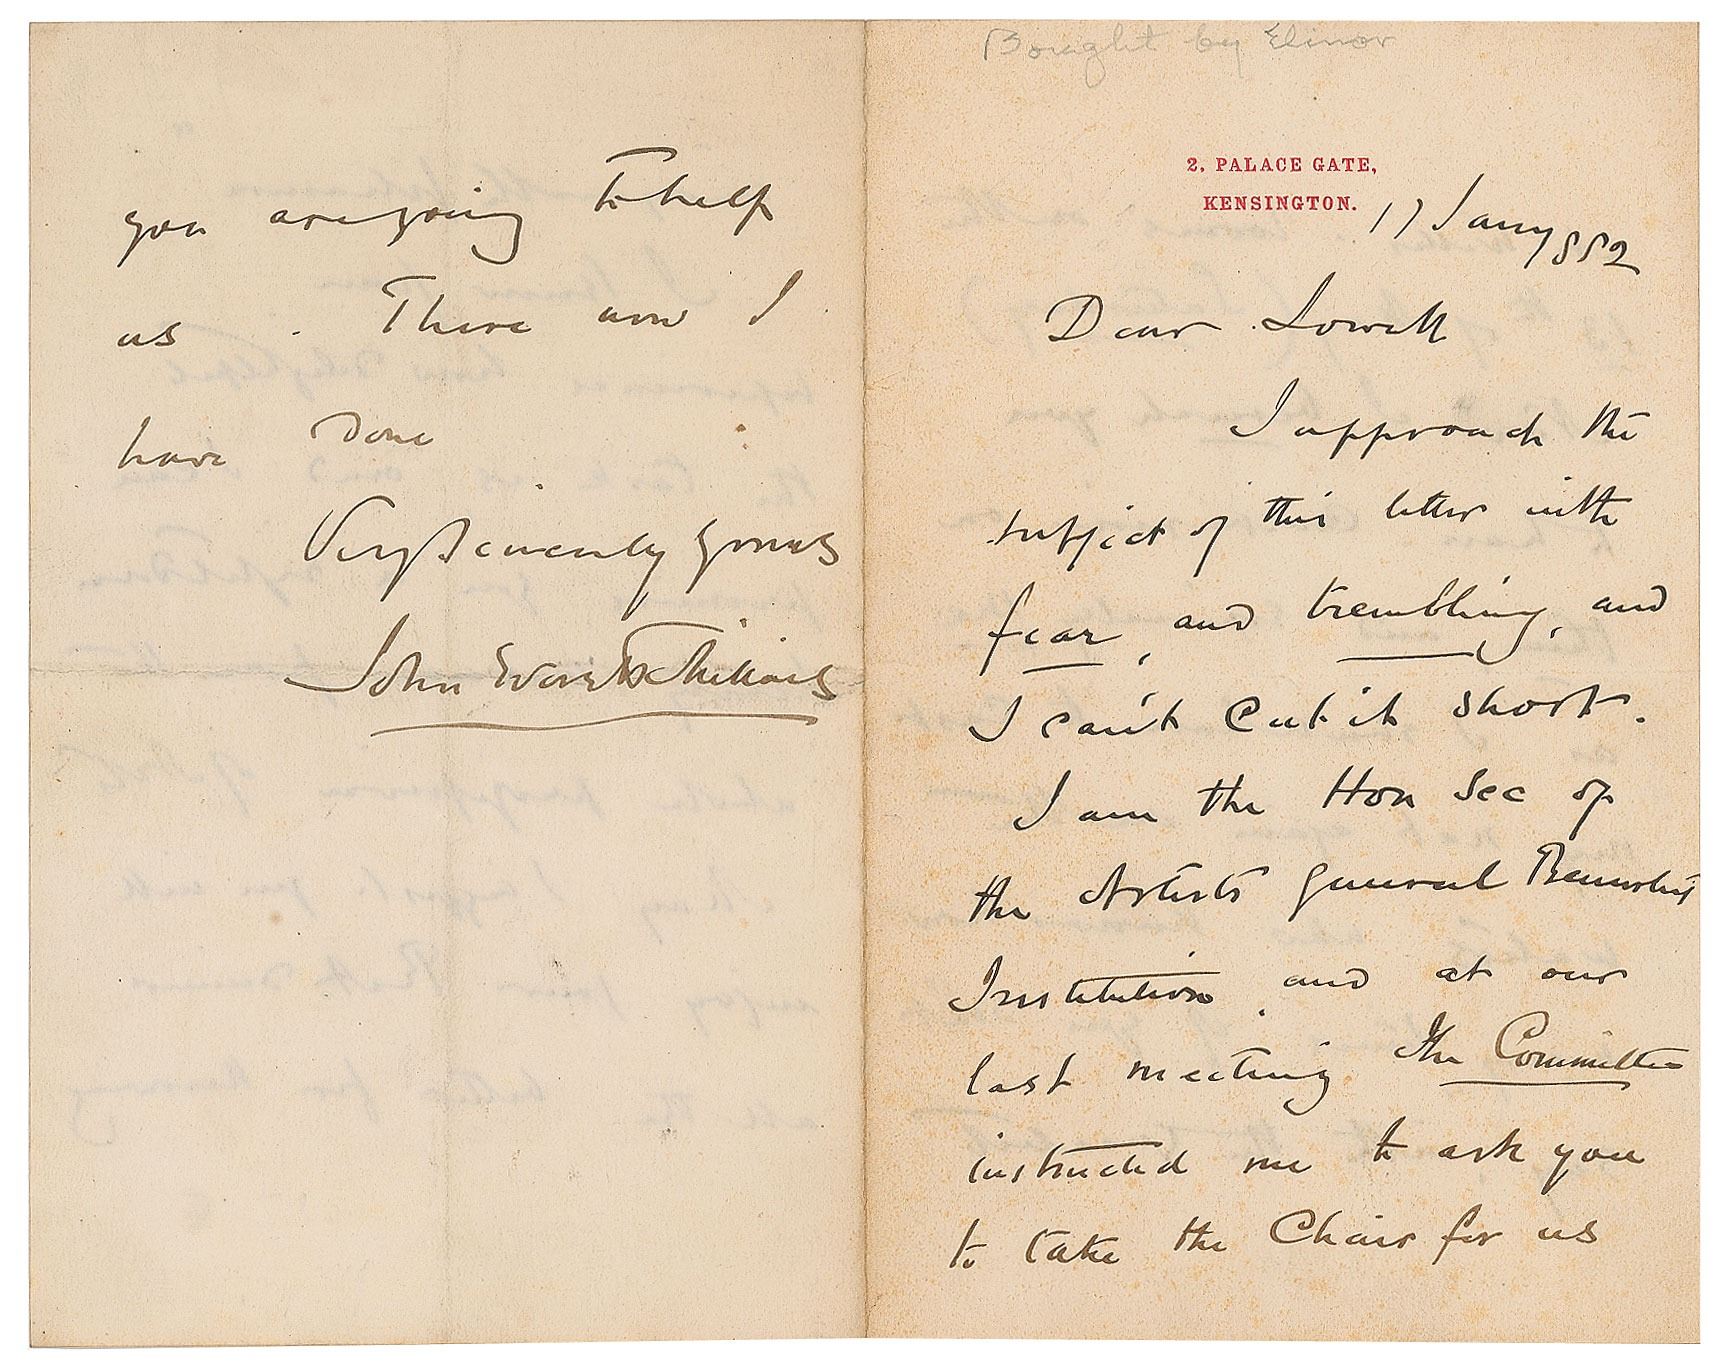 Bought by Elinor
2, PALACE GATE,
KENSINGTON.
17 Jany 882
Dear Lowell
I approach the
subject of this letter with
fear, and trembling, and
I can't cut it short.
I am the Hon Sec of
the Artists General Benevolent
Institution, and at our
last meeting the Committee
instructed me to ask you
to take the Chair for us
you are going to help
us. There now I
have done
Very sincerely yours
John Everett Millais